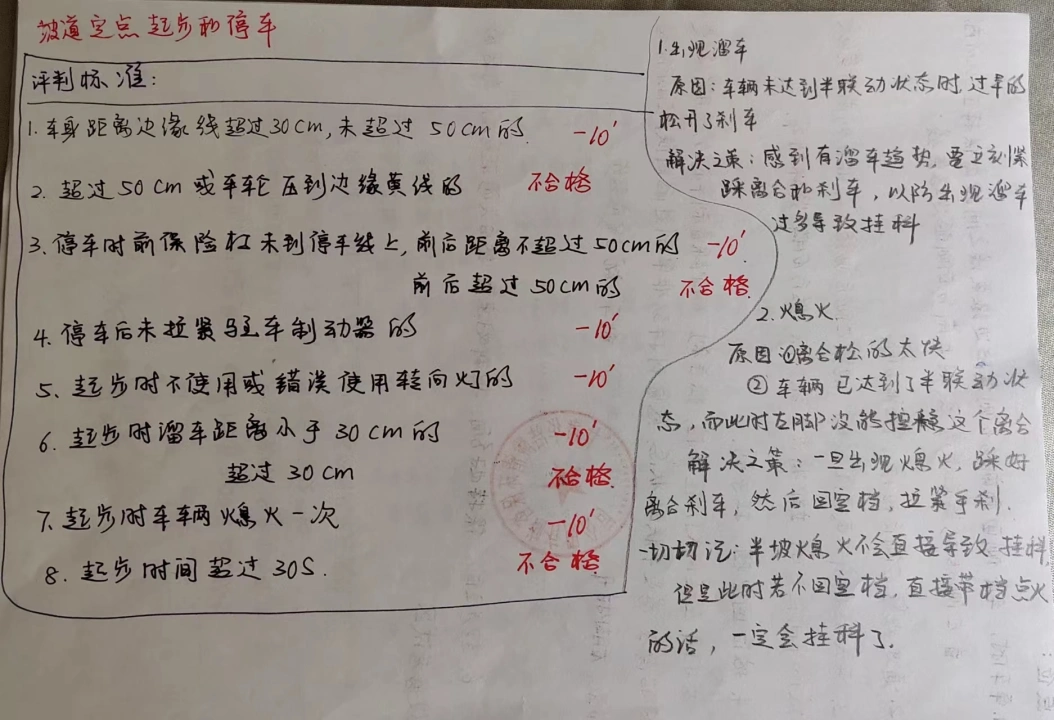 坡道定点起步和停车
评判标准:
1. 车身距离边缘线超过30cm,未超过 50cm的 -10'
2. 超过50cm或车轮压到边缘黄线的 不合格
3. 停车时前保险杠未到停车线上,前后距离不超过50cm的 -10'
前后超过50cm的 不合格.
4. 停车后未拉紧驻车制动器的 -10'
5. 起步时不使用或错误使用转向灯的 -10'
6. 起步时溜车距离小于30cm的 -10'
超过30cm 不合格.
7. 起步时车辆熄火一次 -10'
8. 起步时间超过30S. 不合格.
1. 出现溜车
原因:车辆未达到半联动状态时,过早的
松开了刹车
解决之策:感到有溜车趋势,要立刻紧
踩离合和刹车,以防出现溜车
过多导致挂科
2. 熄火
原因①离合松的太快
② 车辆已达到了半联动状
态,而此时左脚没能控稳这个离合
解决之策:一旦出现熄火,踩好
离合刹车,然后回空档,拉紧手刹.
一切切记:半坡熄火不会直接导致挂科,
但是此时若不回空档,直接带档点火
的话,一定会挂科了.